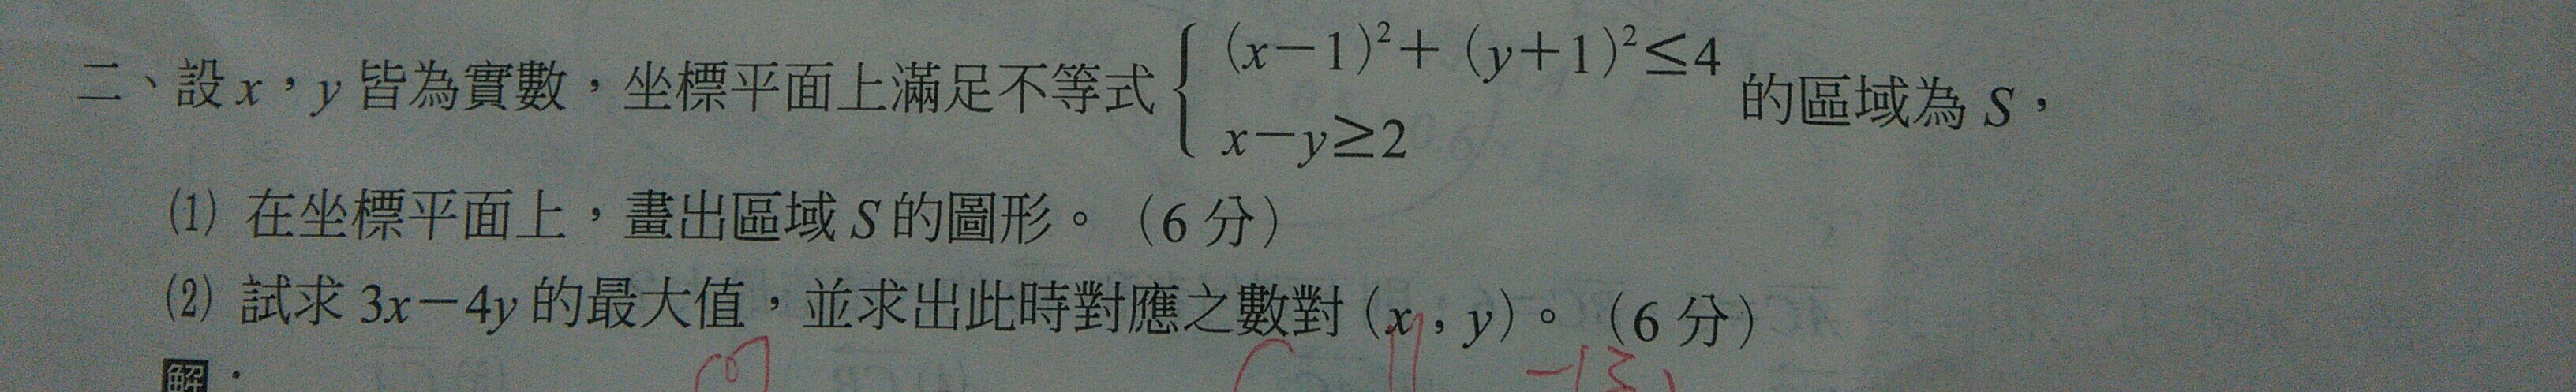 二、設 x，y 皆為實數，坐標平面上滿足不等式 { (x－1)²＋(y＋1)²≤4 的區域為 S，
x－y≥2
(1) 在坐標平面上，畫出區域 S 的圖形。（6 分）
(2) 試求 3x－4y 的最大值，並求出此時對應之數對 (x , y)。（6 分）
解：